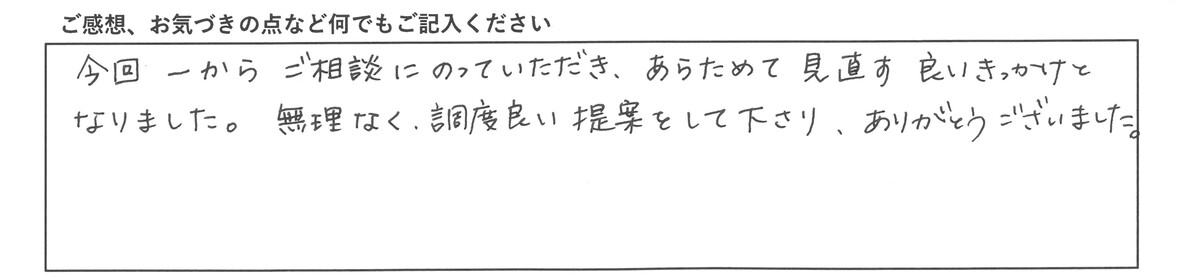 ご感想、お気づきの点など何でもご記入ください
今回一からご相談にのっていただき、あらためて見直す良いきっかけと
なりました。無理なく、調度良い提案をして下さり、ありがとうございました。